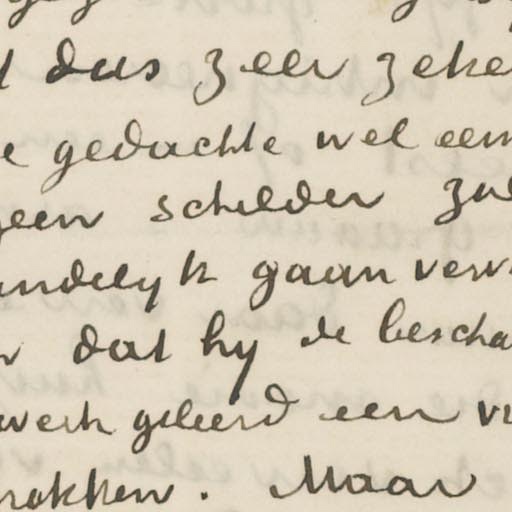 dus zeer zeke
e gedachte wel een
geen schilder zul
ndelyk gaan verv
dat hy de bescha
werk geleerd een vr
rokken. Maar